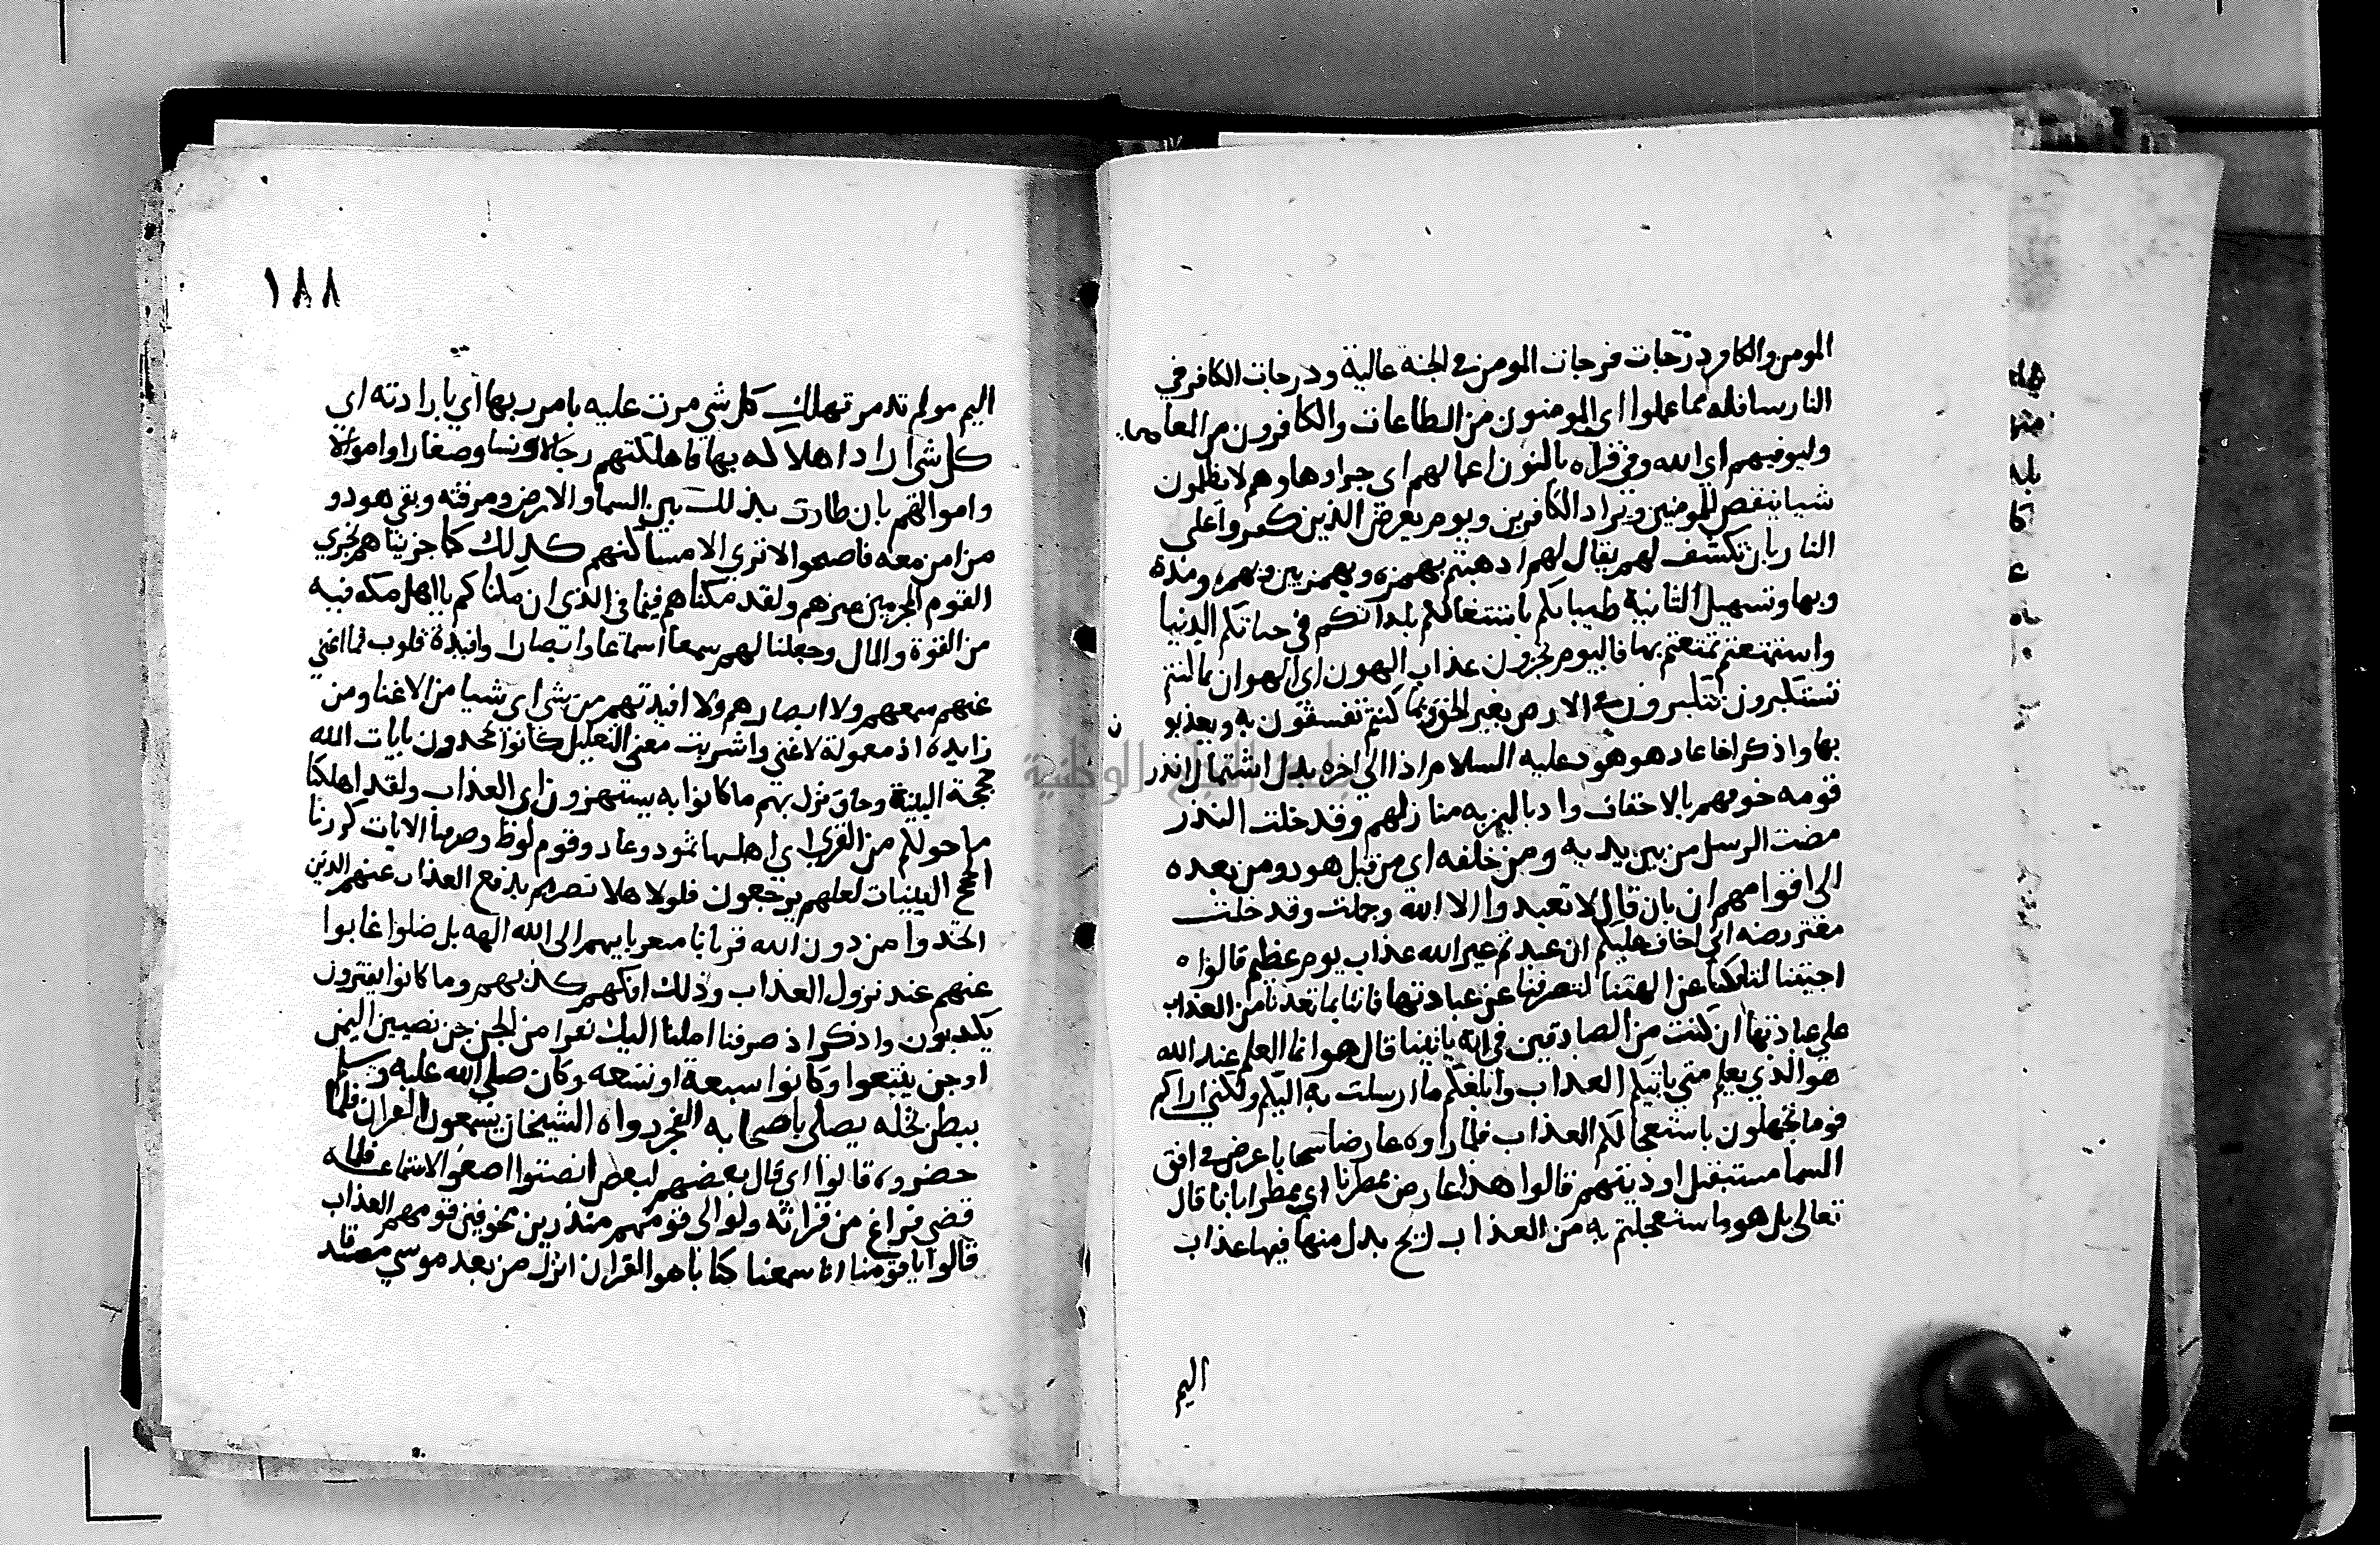 المومن والكافر درجات فدرجات المومن في الجنة عالية ودرجات الكافر في
النار سافله مما عملوا اي المومنون من الطاعات والكافرون من المعاصي
وليوفيهم اي الله وفي قراه بالنون اعمالهم اي جزاوها وهم لا يظلمون
شيا ينقص للمومنين ويزاد الكافرين ويوم يعرض الذين كفروا على
النار بان تكشف لهم يقال لهم اذهبتم بهمزه وبهمزتين وبهمزه ومده
وبها وتسهيل الثانية طيباتكم باشتغالكم بلذاتكم في حياتكم الدنيا
واستمتعتم تمتعتم بها فاليوم تجزون عذاب الهون اي الهوان بما كنتم
تستكبرون تتكبرون في الارض بغير الحق وبما كنتم تفسقون به ويعذبون
بها واذكر اخا عاد هو هود عليه السلام اذ الي اخره بدل اشتمال انذر
قومه خوفهم بالاحقاف واد باليمن به منازلهم وقد خلت النذر
مضت الرسل من بين يديه ومن خلفه اي من قبل هود ومن بعده
الى اقوامهم ان بان قال لا تعبدوا الا الله وجملت وقد خلت
معترضه اني اخاف عليكم ان عبدتم غير الله عذاب يوم عظيم قالوا
اجيتنا لتافكنا عن الهتنا لتصرفنا عن عبادتها فاتنا بما تعدنا من العذاب
على عبادتها ان كنت من الصادقين في انه ياتينا قال هو انما العلم عند الله
هو الذي يعلم متي ياتيكم العذاب وابلغكم ما ارسلت به اليكم ولكني اراكم
قوما تجهلون باستعجالكم العذاب فلما راوه عارضا سحابا عرض في افق
السما مستقبل اوديتهم قالوا هذا عارض ممطرنا اي ممطر ايانا قال
تعالى بل هو ما استعجلتم به من العذاب ريح بدل منها فيها عذاب
اليم
١٨٨
اليم مولم تدمر تهلك كل شي مرت عليه بامر ربها اي بارادته اي
كل شي اراد اهلاكه بها فاهلكتهم رجالا ونسا وصغارا واموالا
واموالهم بان طارت بذلك بين السما والارض ومزقته وبقي هود و
من امن معه فاصبحوا لا تري الا مساكنهم كذلك كما جزيناهم نجزي
القوم المجرمين غيرهم ولقد مكناهم فيما في الذي ان مكناكم يا اهل مكه فيه
من القوة والمال وجعلنا لهم سمعا اسماعا وابصارا وافيدة قلوب فما اغني
عنهم سمعهم ولا ابصارهم ولا افيدتهم من شي اي شيا من الاغنا ومن
زايدة اذ معمولة لاغني واشربت معني التعليل كانوا يجحدون بايات الله
حججه البينة وحاق نزل بهم ما كانوا به يستهزون اي العذاب ولقد اهلكنا
ما حولكم من القري اي اهلها ثمود وعاد وقوم لوط وصرفنا الايات كررنا
الحجج البينات لعلهم يرجعون فلولا هلا نصرهم بدفع العذاب عنهم الذين
اتخذوا من دون الله قربانا متقربا بهم الى الله الهه بل ضلوا غابوا
عنهم عند نزول العذاب وذلك افكهم كذبهم وما كانوا يفترون
يكذبون واذكر اذ صرفنا املنا اليك نفرا من الجن جن نصيبين اليمن
او جن نينوا وكانوا سبعة او تسعه وكان صلى الله عليه وسلم
ببطن نخله يصلي باصحابه الفجر رواه الشيخان يستمعون القران فلما
حضروه قالوا اي قال بعضهم لبعض انصتوا اصغوا لاستماعه فلما
قضي فراغ من قراته ولوا الى قومهم منذرين مخوفين قومهم العذاب
قالوا يا قومنا انا سمعنا كتابا هو القران انزل من بعد موسي مصدقا